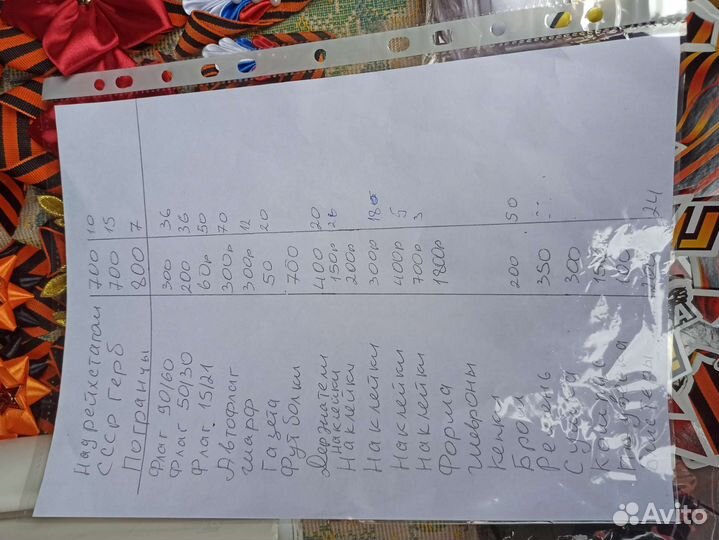 Над рейхстагом 700 10
СССР герб 700 15
Погранцы 800 7
Флаг 90/60 300 36
Флаг 50/30 200 36
Флаг 15/21 60р 50
Автофлаг 300р 70
шарф 300р 12
Газета 50 20
Футболки 700
Держатели 400 20
Наклейки 150р
Наклейки 200р
Наклейки 300р 18
Наклейки 400р 5
Наклейки 700р 3
Форма 1800р
Шевроны
Кепки
200 50
350
300
24
Avito